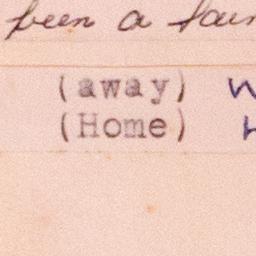 been a fair
(away) W
(Home) H